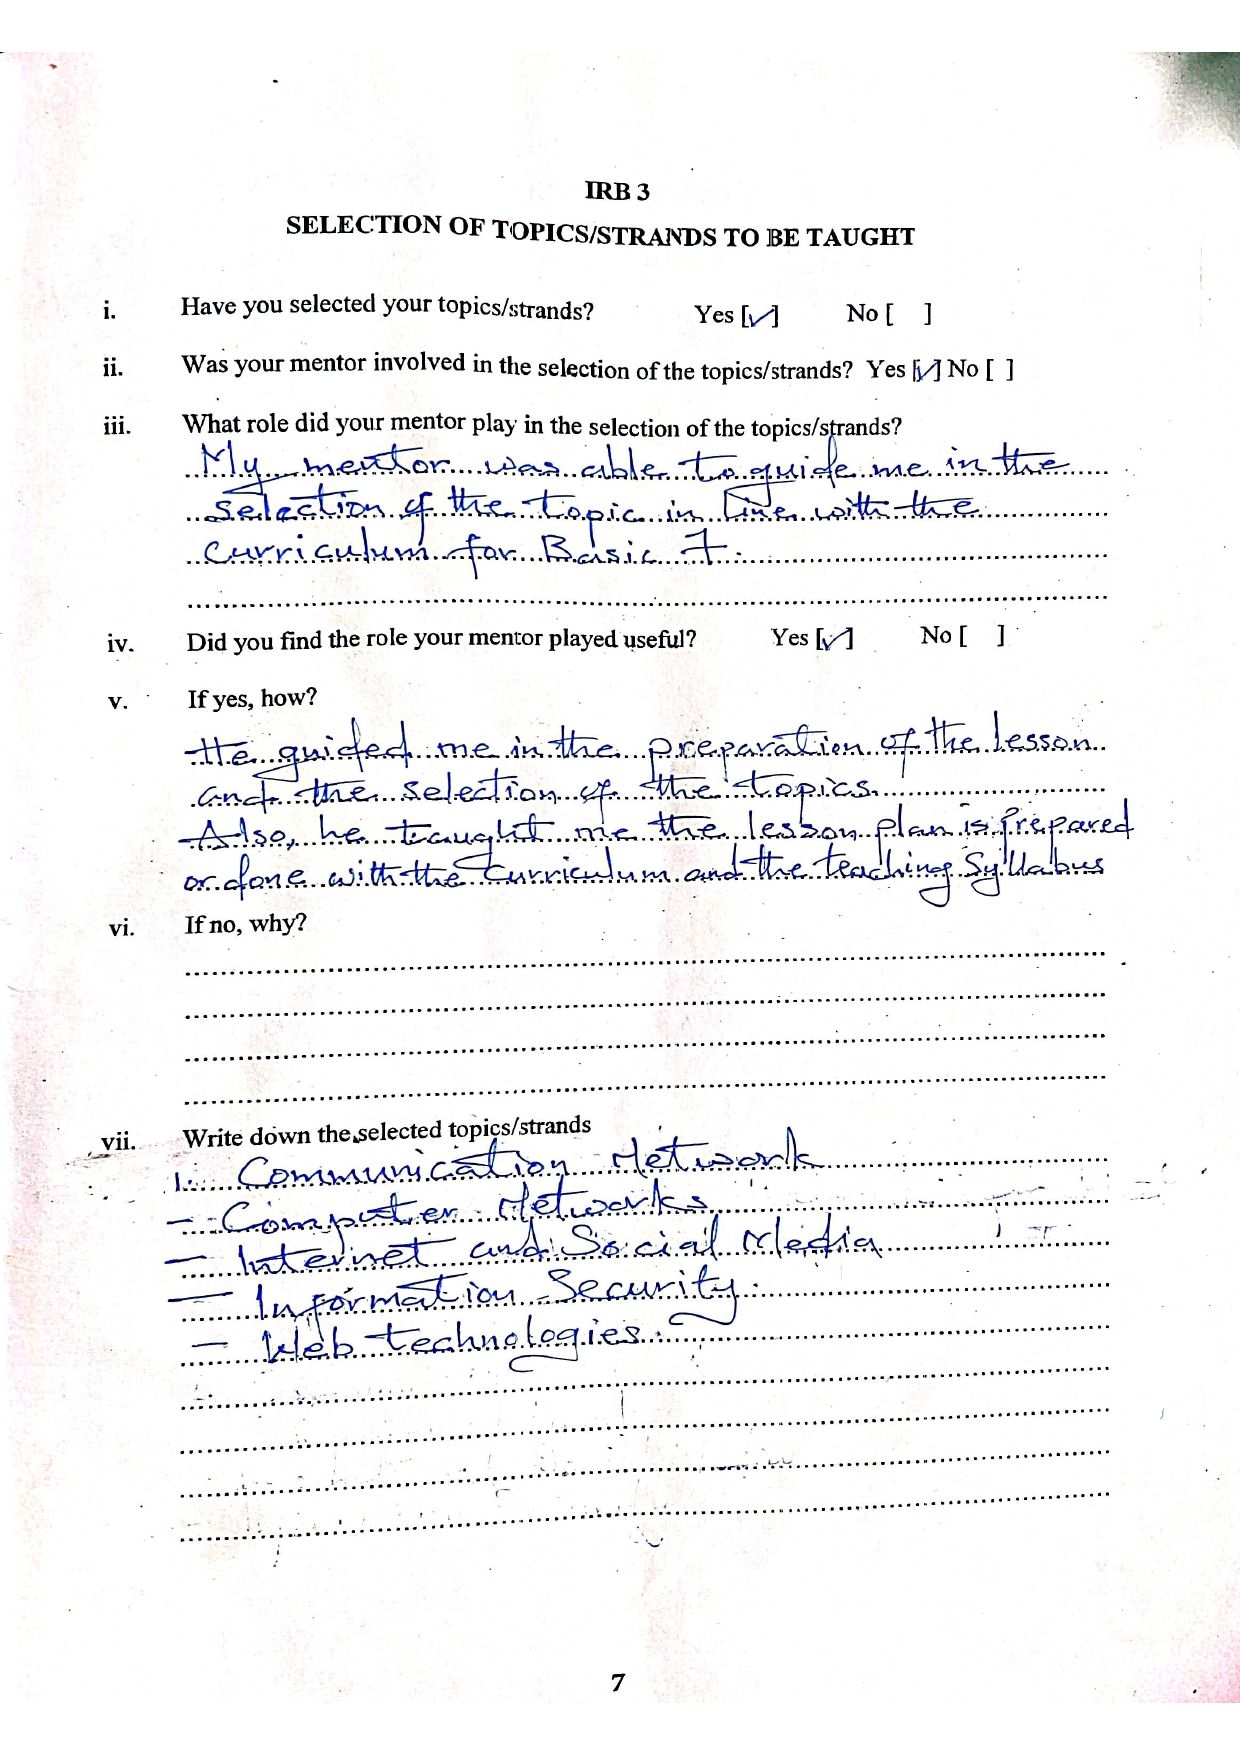 IRB 3
SELECTION OF TOPICS/STRANDS TO BE TAUGHT
i. Have you selected your topics/strands? Yes [✓] No [ ]
ii. Was your mentor involved in the selection of the topics/strands? Yes [✓] No [ ]
iii. What role did your mentor play in the selection of the topics/strands?
My mentor was able to guide me in the
selection of the topic in line with the
curriculum for Basic 7.
iv. Did you find the role your mentor played useful? Yes [✓] No [ ]
v. If yes, how?
He guided me in the preparation of the lesson
and the selection of the topics.
Also, he taught me the lesson plan is prepared
or done with the curriculum and the teaching Syllabus
vi. If no, why?
vii. Write down the selected topics/strands
1. Communication Network
- Computer Networks
- Internet and Social Media
- Information Security.
- Web technologies.
7